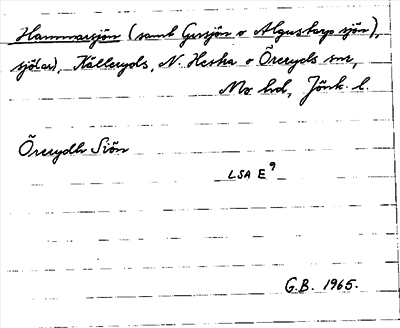 Hammarsjön (samt Gursjön o Algustorps sjön),
sjö(ar), Kålleryds, N. Hestra o Öreryds snr,
Mo hd, Jönk. l.
Örerydh Siön
LSA E9
G.B. 1965.